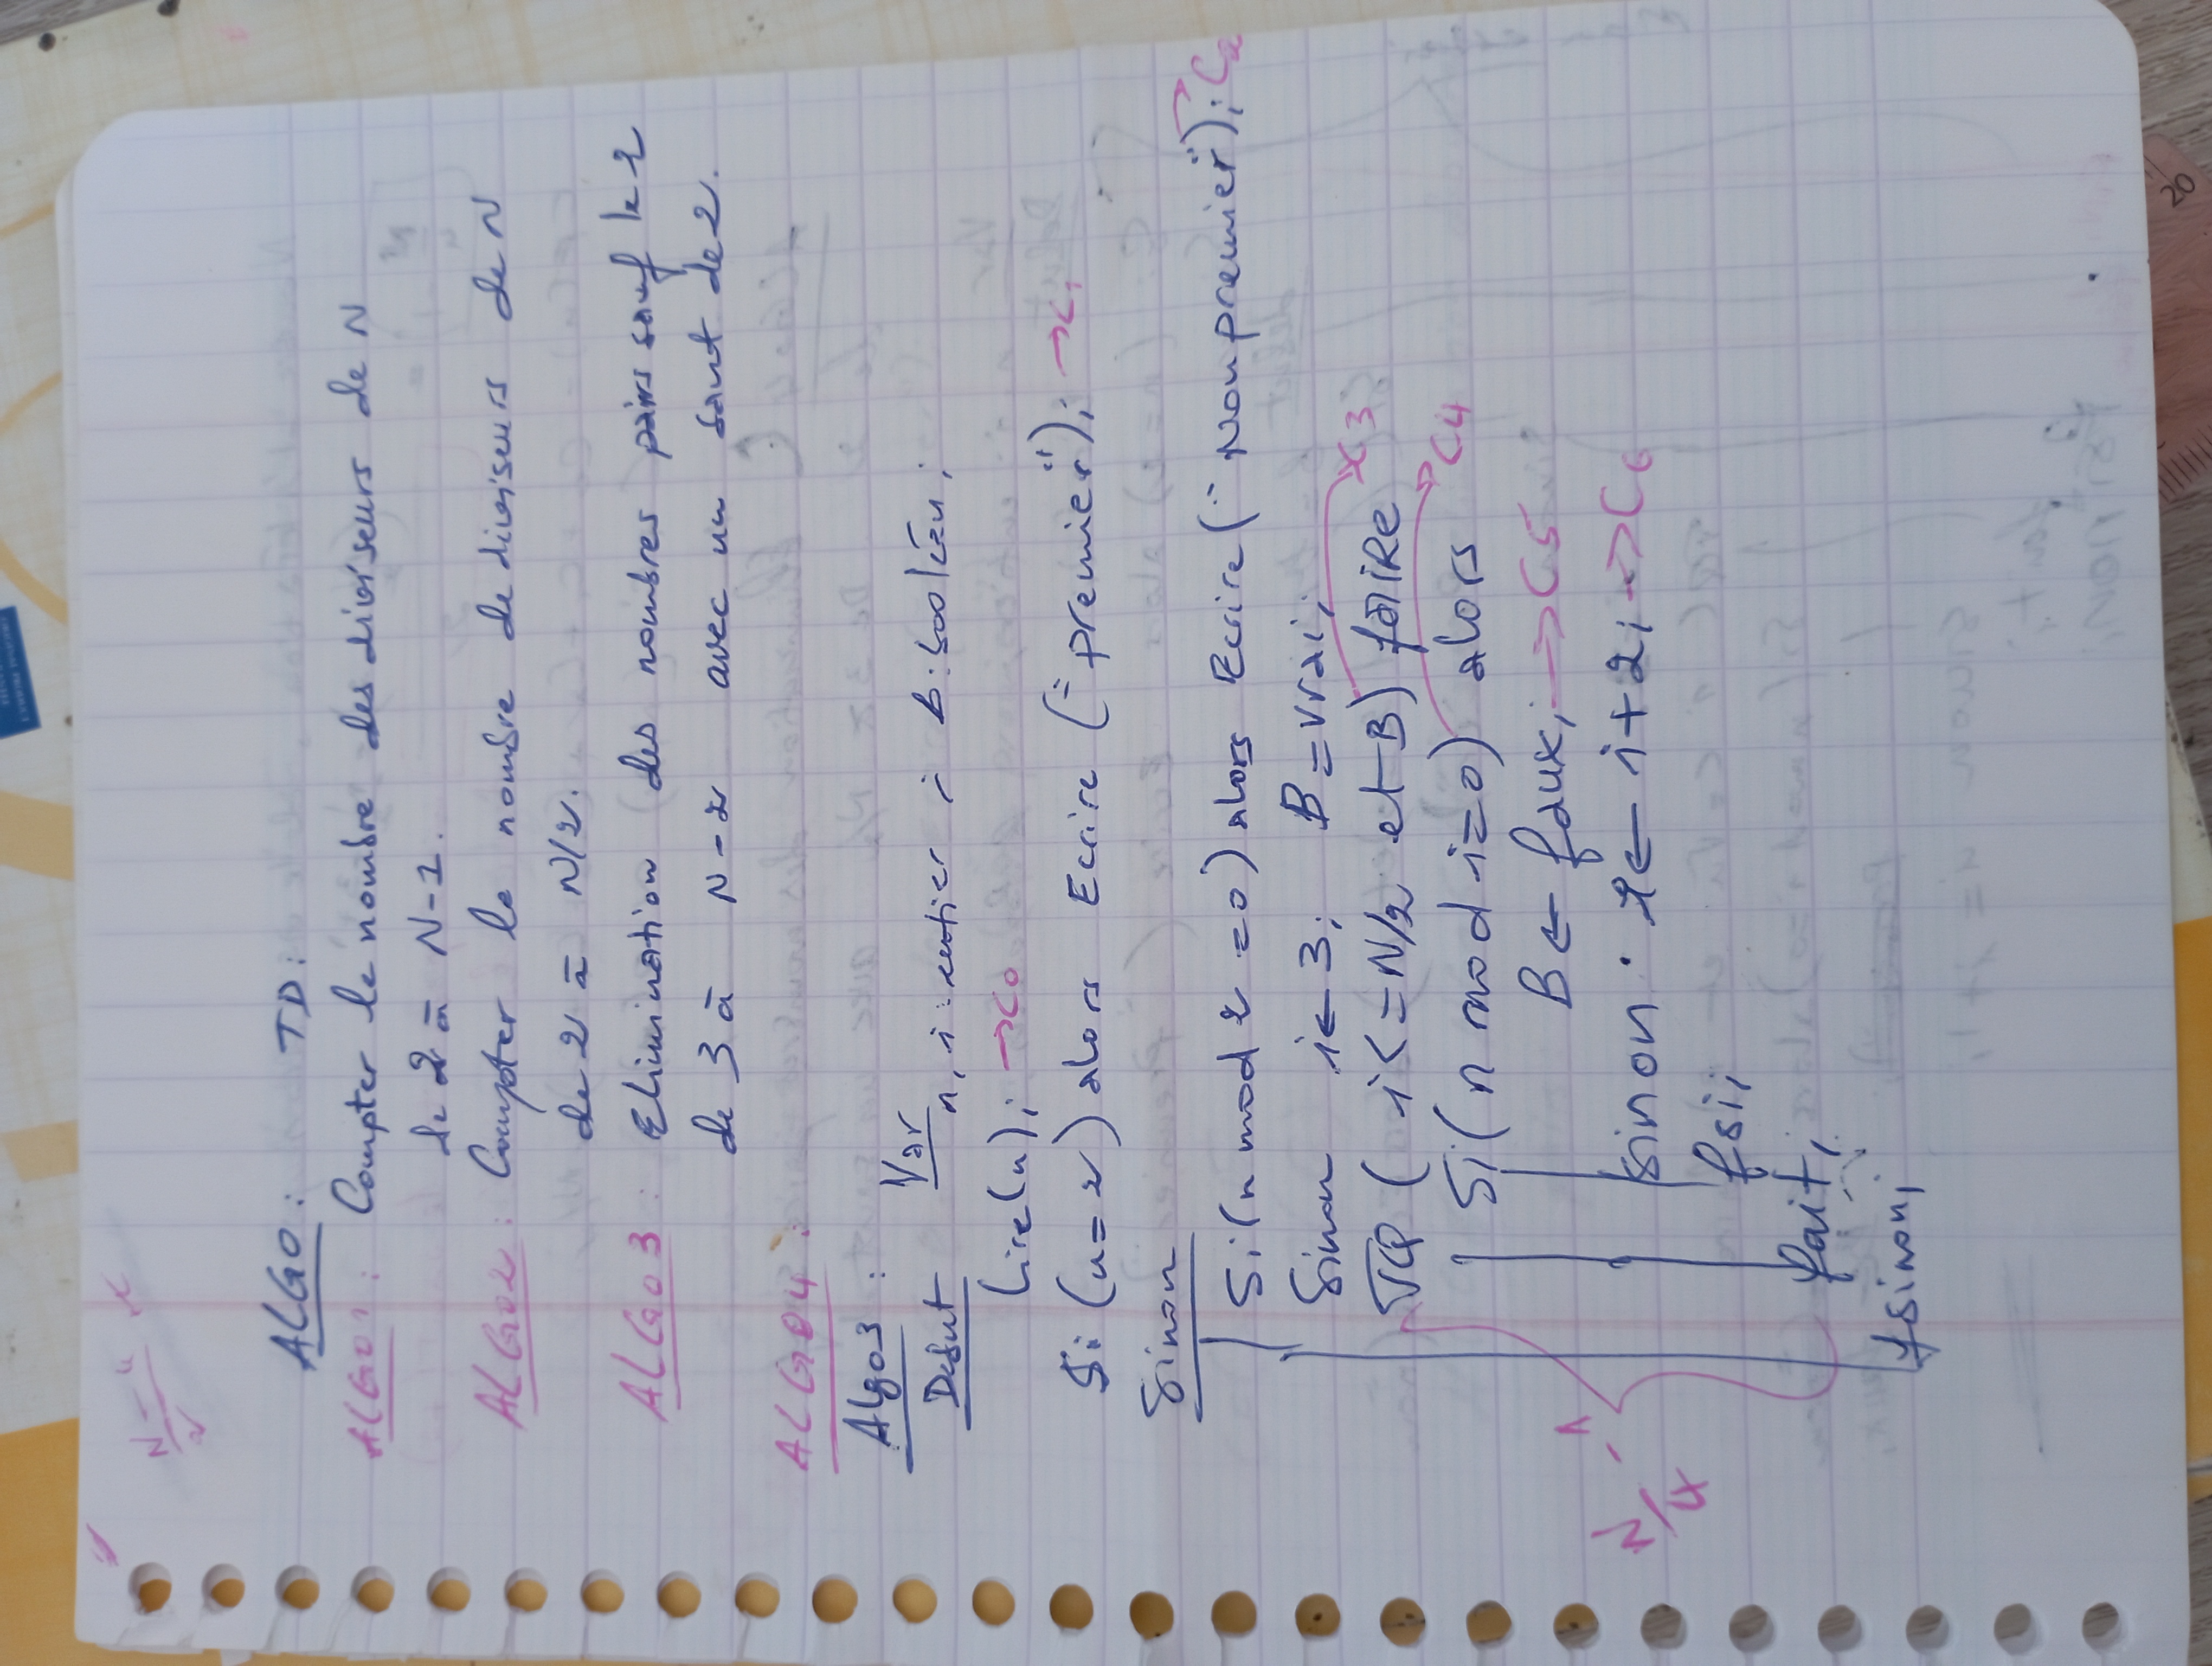 ALGO : TD:
ALGO1: Compter le nombre des diviseurs de N
de 2 à N-1.
ALGO2: Compter le nombre de diviseurs de N
de 2 à N/2.
ALGO3: Elimination des nombres pairs sauf le 2
de 3 à N-2 avec un saut de 2.
ALGO4:
Algo3 : Var n, i : entier ; b : booléen ;
Debut
Lire(n); → C0
Si (n=2) alors Ecire ("premier"); → C1
Sinon
Si (n mod 2 =0) alors Ecrire ("Non premier"); C2
Sinon i←3; B=vrai;
TQ ( i<=N/2 et B) faire → C3
Si (n mod i=0) alors → C4
B ← faux; → C5
Sinon : i ← i+2; → C6
fsi;
fait;
fsinon;
N/4 - 1
20